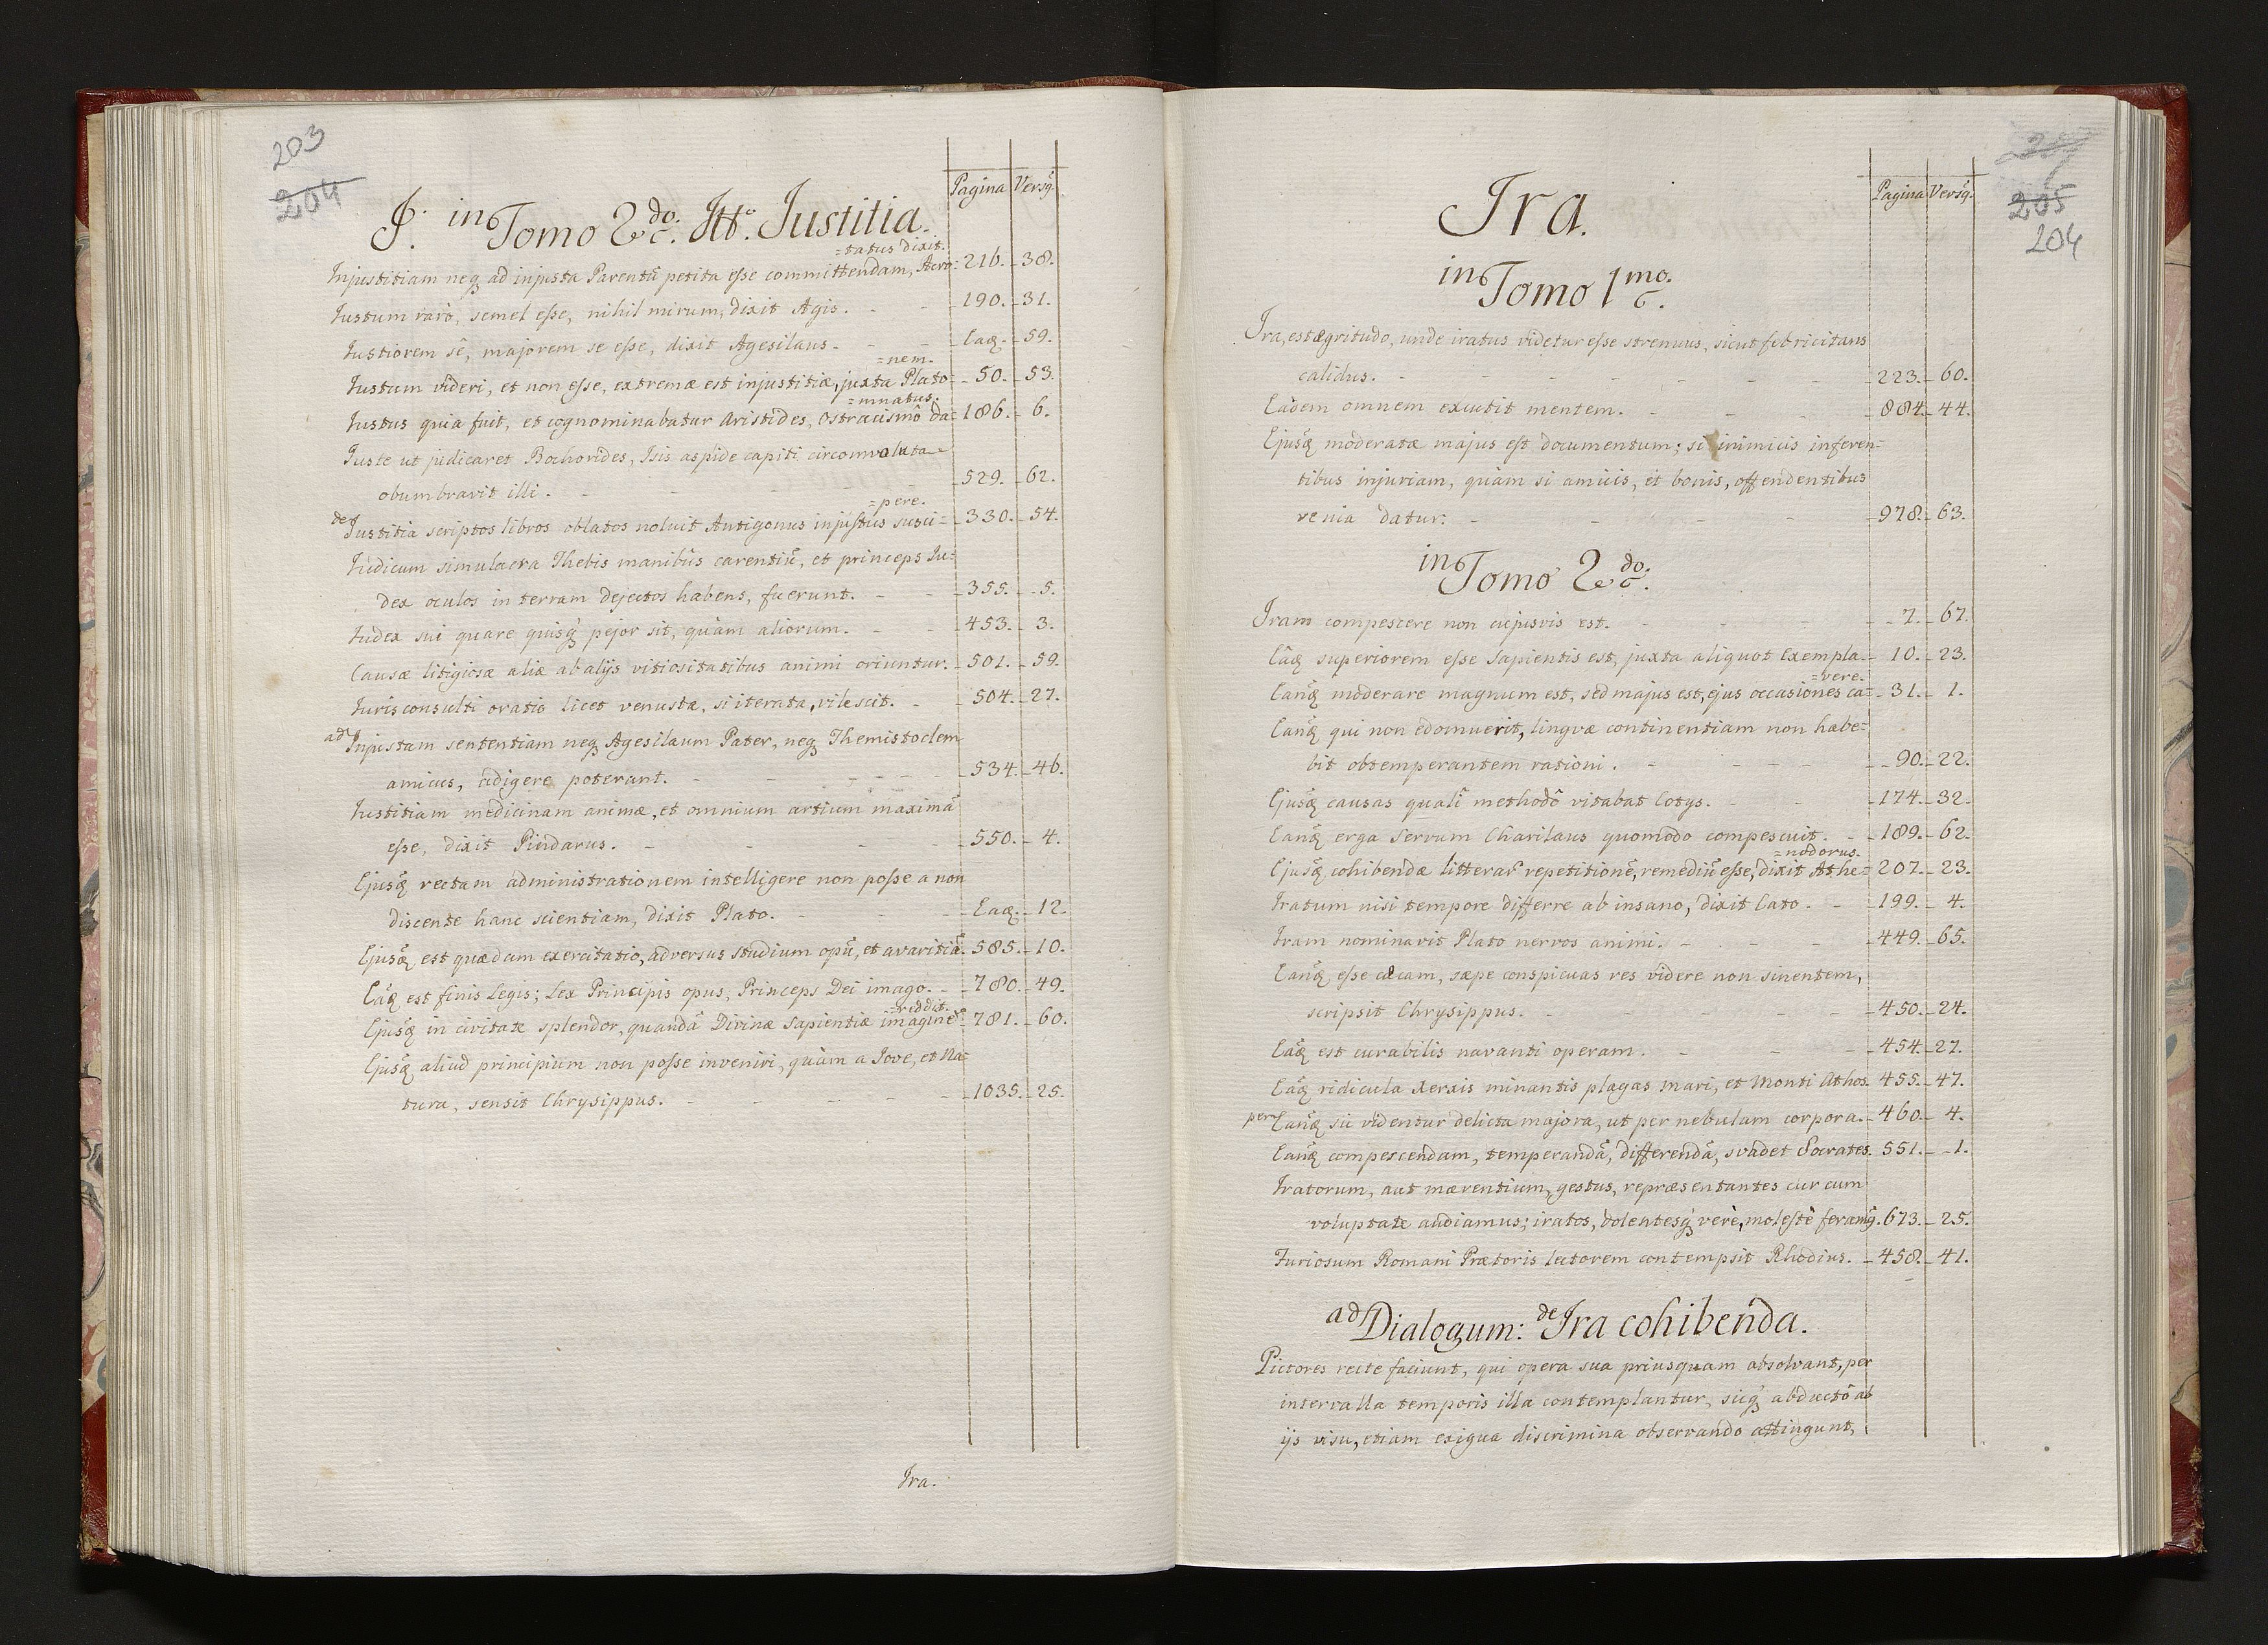 203
204
Pagina Versq̃.
J. in Tomo 2do. Jtto. Justitia.
=tatus dixit.
Injustitiam neq3 ad injusta Parentũ petita esse committendam, Acro= 216. 38.
Justum rarò, semel esse, nihil mirum, dixit Agis. 190. 31.
Justiorem sê, majorem se esse, dixit Agesilaus. Eaq3. 59.
=nem.
Justum videri, et non esse, extremæ est injustitiæ, juxta Plato= 50. 53.
=mnatus.
Justus quia fuit, et cognominabatur Aristides, Ostracismô da= 186. 6.
Juste ut judicaret Bochorides, Isis aspide capiti circomvoluta
obumbravit illi. 529. 62.
=pere.
de Justitia scriptos libros oblatos noluit Antigonus injustus susci= 330. 54.
Judicum simulacra Thebis manibus carentiũ, et princeps Ju=
dex oculos in terram dejectos habens, fuerunt. 355. 5.
Judex sui quare quisq́ pejor sit, quàm aliorum. 453. 3.
Causæ litigiosæ aliæ ab alijs vitiositatibus animi oriuntur. 501. 59.
Jurisconsulti oratio licet venusta, si iterata, vilescit. 504. 27.
ad Injustam sententiam neq3 Agesilaum Pater, neq3 Themistoclem
amicus, adigere poterant. 534. 46.
Justitiam medicinam animæ, et omnium artium maximã
esse, dixit Pindarus. 550. 4.
Ejusq̃3 rectam administrationem intelligere non posse a non
discente hanc scientiam, dixit Plato. Eaq3. 12.
Ejusq̃3 est quædam exercitatio, adversus studium opũ, et avaritiã. 585. 10.
Eãq3 est finis Legis; Lex Principis opus, Princeps Dei imago. 780. 49.
=reddit.
Ejusq̃3 in civitate splendor, quandã Divinæ Sapientiæ imaginẽ= 781. 60.
Ejusq̃3 aliud principium non posse inveniri, quàm a Jove, et Na=
tura, sensit Chrysippus. 1035. 25.
Ira.
205
204
Pagina Versq̃.
Ira.
in Tomo 1mo.
Ira, est ægritudo, unde iratus videtur esse strenuus, sicut febricitans
calidus. 223. 60.
Eâdem omnem excutit mentem. 884. 44.
Ejusq̃3 moderatæ majus est documentum; si inimicis inferen=
tibus injuriam, quàm si amicis, et bonis, offendentibus
venia datur. 978. 63.
in Tomo 2do.
Iram compescere non cujusvis est. 7. 67.
Eâq3 superiorem esse Sapientis est, juxta aliquot Exempla. 10. 23.
=vere.
Eanq̃3 moderare magnum est, sed majus est, ejus occasiones ca= 31. 1.
Eanq̃3 qui non edomuerit, linguæ continentiam non habe=
bit obtemperantem rationi. 90. 22.
Ejusq̃3 causas quali methodô vitabat Cotys. 174. 32.
Eanq̃3 erga Servum Charilaus quomodo compescuit. 189. 62.
=nodorus.
Ejusq̃3 cohibendæ litterar̃ repetitionẽ, remediũ esse, dixit Athe= 207. 23.
Iratum nisi tempore differre ab insano, dixit Cato. 199. 4.
Iram nominavit Plato nervos animi. 449. 65.
Eanq̃3 esse cæcam, sæpe conspicuas res videre non sinentem,
scripsit Chrysippus. 450. 24.
Eãq3 est curabilis navanti operam. 454. 27.
Eãq3 ridicula Xerxis minantis plagas mari, et Monti Athos. 455. 47.
per Eanq̃3 sic videntur delicta majora, ut per nebulam corpora. 460. 4.
Eanq̃3 compescendam, temperandã, differendã, svadet Socrates. 551. 1.
Iratorum, aut mærentium, gestus, repræsentantes cur cum
voluptate audiamus; iratos, dolentesq́ verè, molestè feramq̃. 673. 25.
Furiosum Romani Prætoris lictorem contempsit Rhodius. 458. 41.
ad Dialogum: de Ira cohibenda.
Pictores recte faciunt, qui opera sua priusquam absolvant, per
intervalla temporis illa contemplantur, sicq́ abductô ab
ijs visu, etiam exigua discrimina observando attingunt,